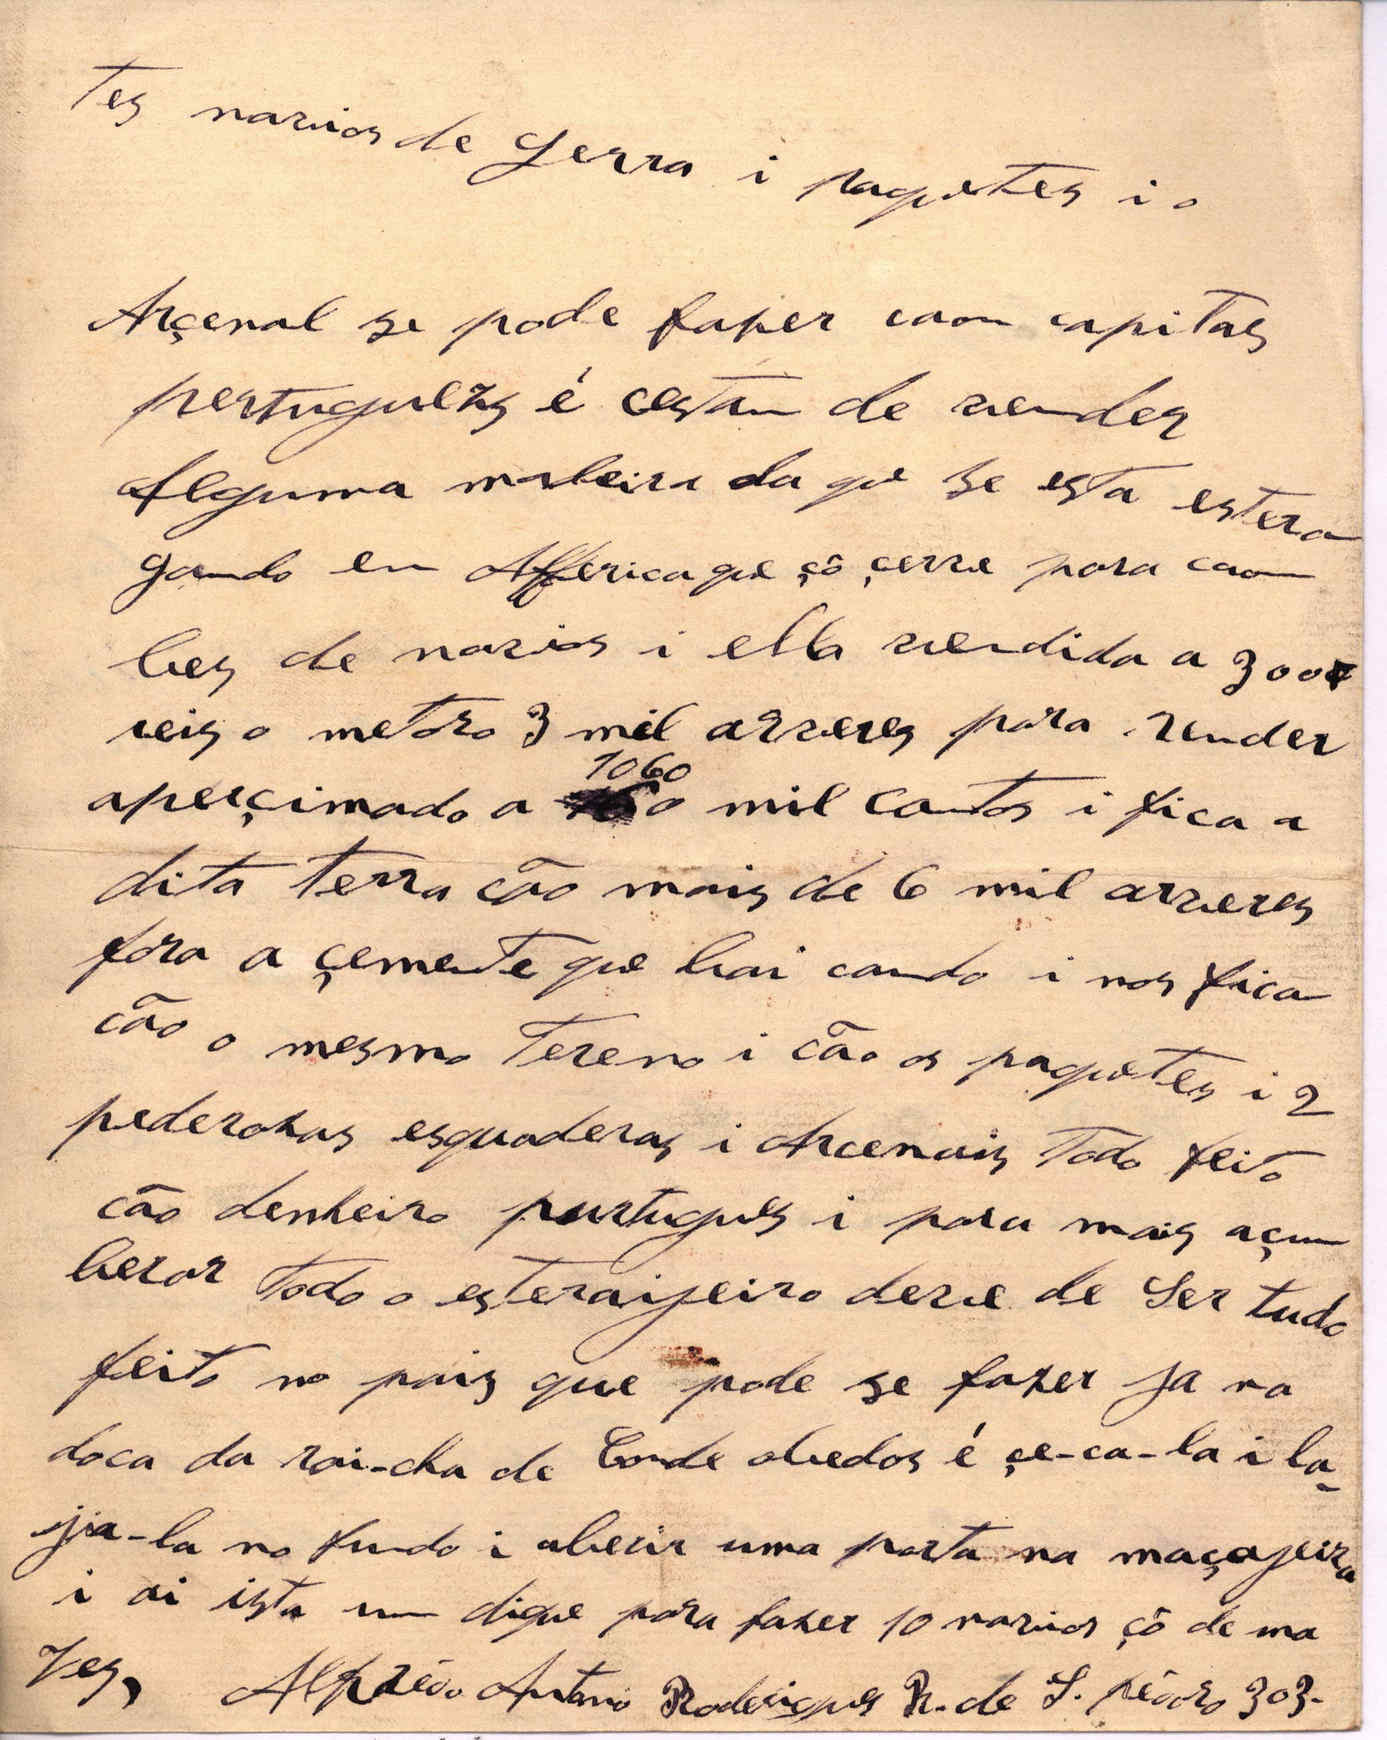 tes navios de gerra i paquetes i o
Arçenal se pode fazer com capitas
pertuguezes é cestam de vender
Alguma madeira da que se esta estera
gando en Afferica que çô çerve para caom
bes de navios i ella vendida a 3000
reis o metoro 3 mil arveres para vender
aperçimado a 1060 mil contos i fica a
dita terra cão mais de 6 mil arveres
fora a çemente que hai caindo i nos fica
cão o mesmo tereno i cão os paquetes i 2
pederozas esquaderas i Arcenais todo feito
cão denheiro purtugués i para mais açom
berar todo o esteraijeiro deve de Ser tudo
feito no pais que pode se fazer ja na
doca da roi-cha de Conde obedos é çe-ca-la i la-
ja-la no fundo i aberir uma porta na maçajeira
i ai ista um dique para fazer 10 navios çô de ma
vez, Alfrêdo Antonio Roderigues R. de S. pêdoro 303-